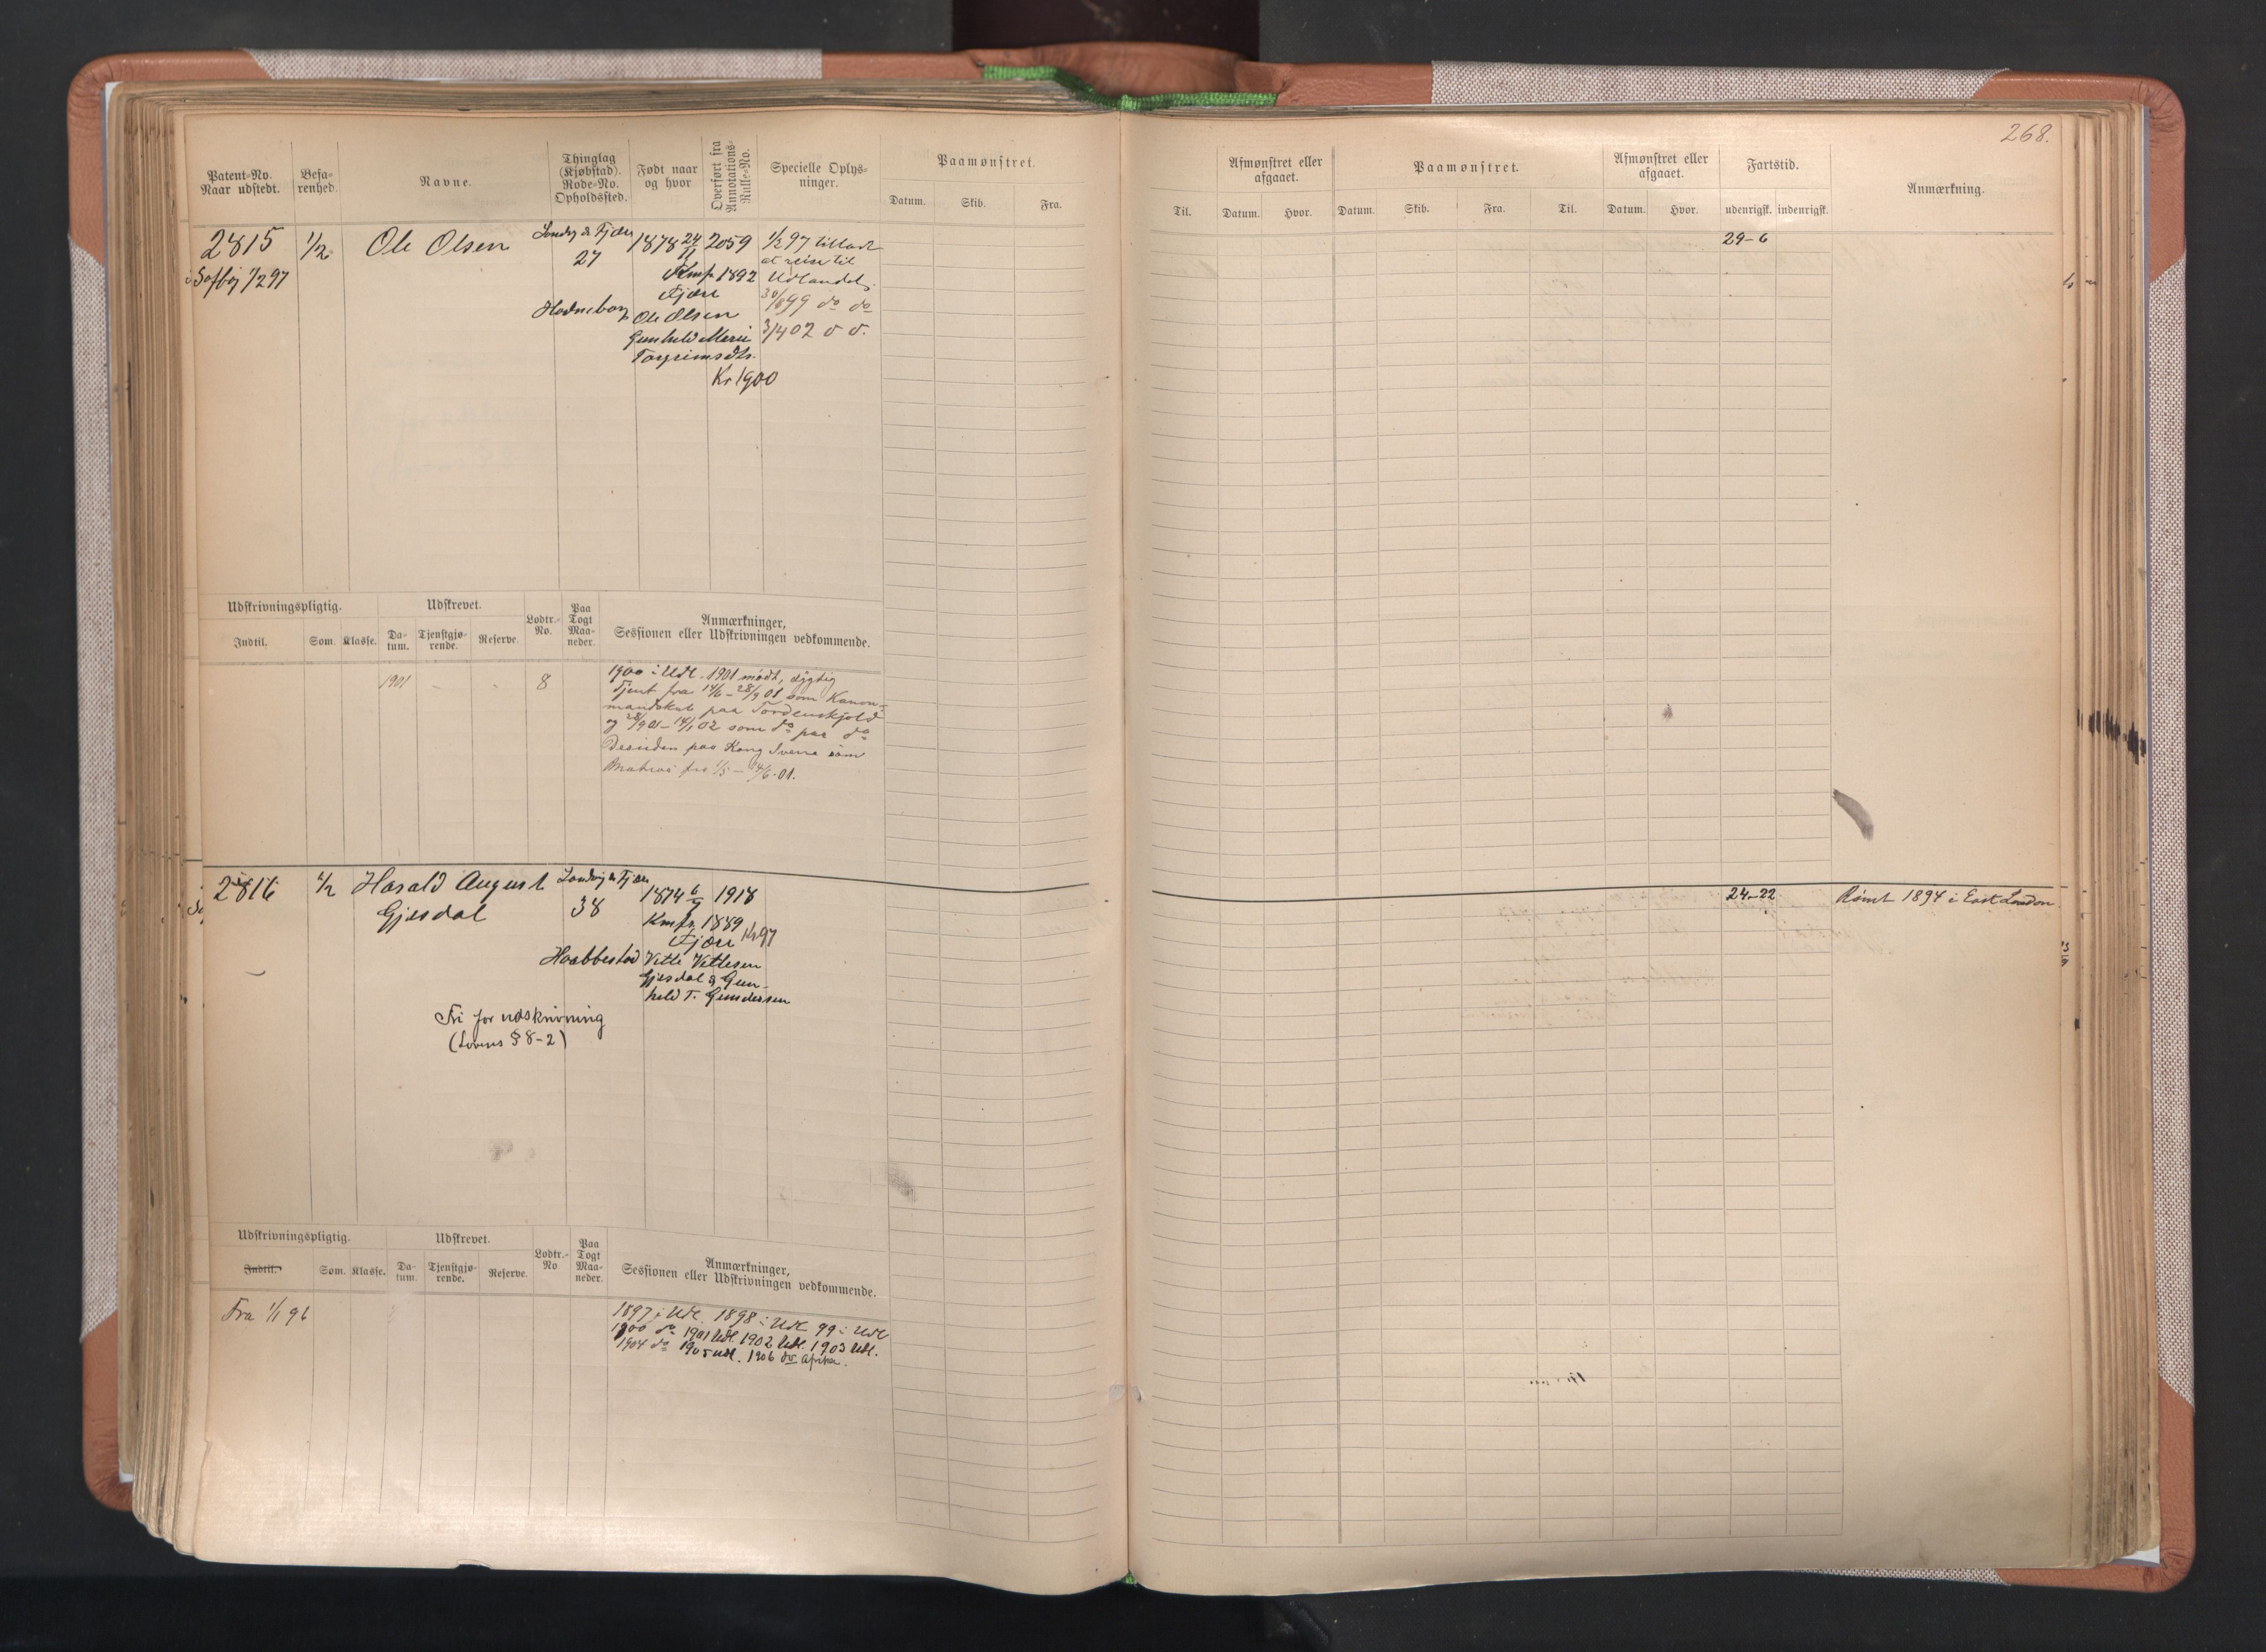 268.
Patent-No. Naar udstedt.
Befarenhed.
Navne.
Thinglag (Kjøbstad). Rode-No. Opholdssted.
Født naar og hvor
Overført fra Annotations-Rulle-No.
Specielle Oplysninger.
Paamønstret.
Datum. Skib. Fra.
Til.
Afmønstret eller afgaaet.
Datum. Hvor.
Paamønstret.
Datum. Skib. Fra. Til.
Afmønstret eller afgaaet.
Datum. Hvor.
Fartstid.
udenrigsk. indenrigsk.
Anmærkning.
2815
1/2
Ole Olsen
Landvig & Fjære
27
1878 24/11
2059
Søfbog 1/2 97
Kmfr 1892
Fjære
Hodneborg
Ole Olsen
Gunhild Marie
Torgrimsdtr.
Kr 1900
1/2 97 tilladt
at reise til
Udlandet.
30/8 99 do do
3/4 02 d d.
29-6
Udskrivningspligtig.
Indtil. Som. Klasse.
Udskrevet.
Datum. Tjenstgjørende. Reserve.
Lodtr.-No.
Paa Togt Maaneder.
Anmærkninger,
Sessionen eller Udskrivningen vedkommende.
1901 - - 8
1900 i Udl. 1901 mødt, dygtig
Tjent fra 14/6 - 28/9 01 som Kanon-
mandskab paa Tordenskjold
og 28/9 01 - 14/1 02 som do paa do
Desuden paa Kong Sverre som
Matros fra 1/5 - 14/6 01.
2816
1/2
Harald August
Gjesdal
Landvig & Fjære
38
1874 6/7
1918
Kmfr. 1889
Fjære
Kr 97
Habbestad
Vetle Vetlesen
Gjesdal & Gun-
hild T. Gundersen
Fri for udskrivning
(Lovens § 8-2)
24-22
Rømt 1894 i East London
Udskrivningspligtig.
Indtil. Som. Klasse.
Udskrevet.
Datum. Tjenstgjørende. Reserve.
Lodtr.-No
Paa Togt Maaneder.
Anmærkninger,
Sessionen eller Udskrivningen vedkommende.
Fra 1/1 96
1897 i Udl. 1898 i Udl 99 i Udl
1900 do 1901 Udl. 1902 Udl. 1903 Udl.
1904 do 1905 Udl. 1906 do Afrika.